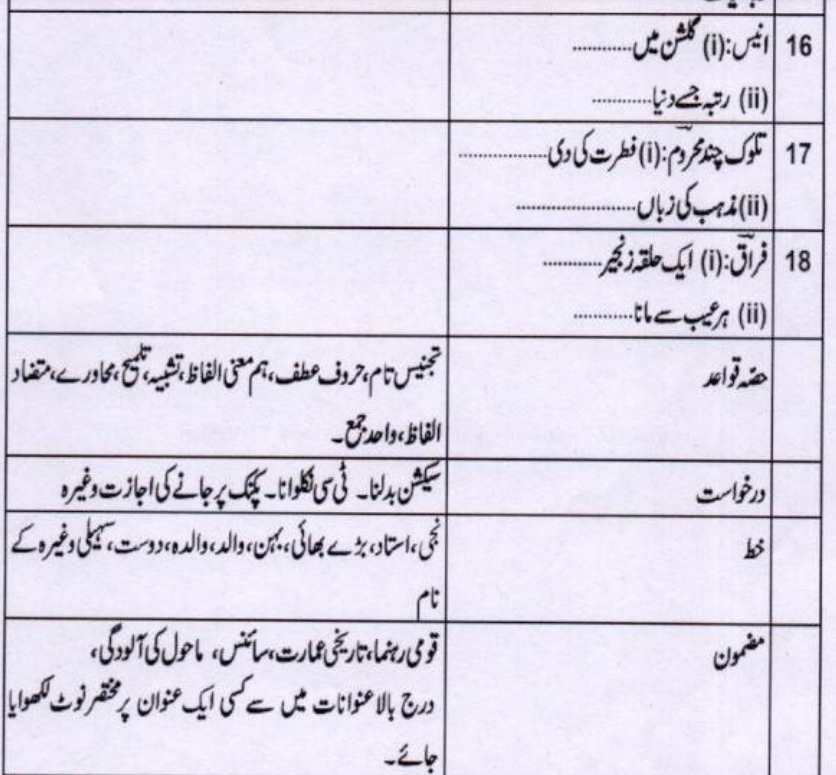 16 انیس: (i) گلشن میں............
(ii) رتبہ جسے دنیا............
17 تلوک چند محروم: (i) فطرت کی دی............
(ii) مذہب کی زباں............
18 فراق: (i) ایک حلقہ زنجیر............
(ii) ہر عیب سے مانا............
حصّہ قواعد
تجنیس تام، حروف عطف، ہم معنی الفاظ، تشبیہ، تلمیح، محاورے، متضاد
الفاظ، واحد جمع۔
درخواست
سیکشن بدلنا۔ ٹی سی نکلوانا۔ پکنک پر جانے کی اجازت وغیرہ
خط
نجی، استاد، بڑے بھائی، بہن، والد، والدہ، دوست، سہیلی وغیرہ کے
نام
مضمون
قومی رہنما، تاریخی عمارت، سائنس، ماحول کی آلودگی،
درج بالا عنوانات میں سے کسی ایک عنوان پر مختصر نوٹ لکھوایا
جائے۔